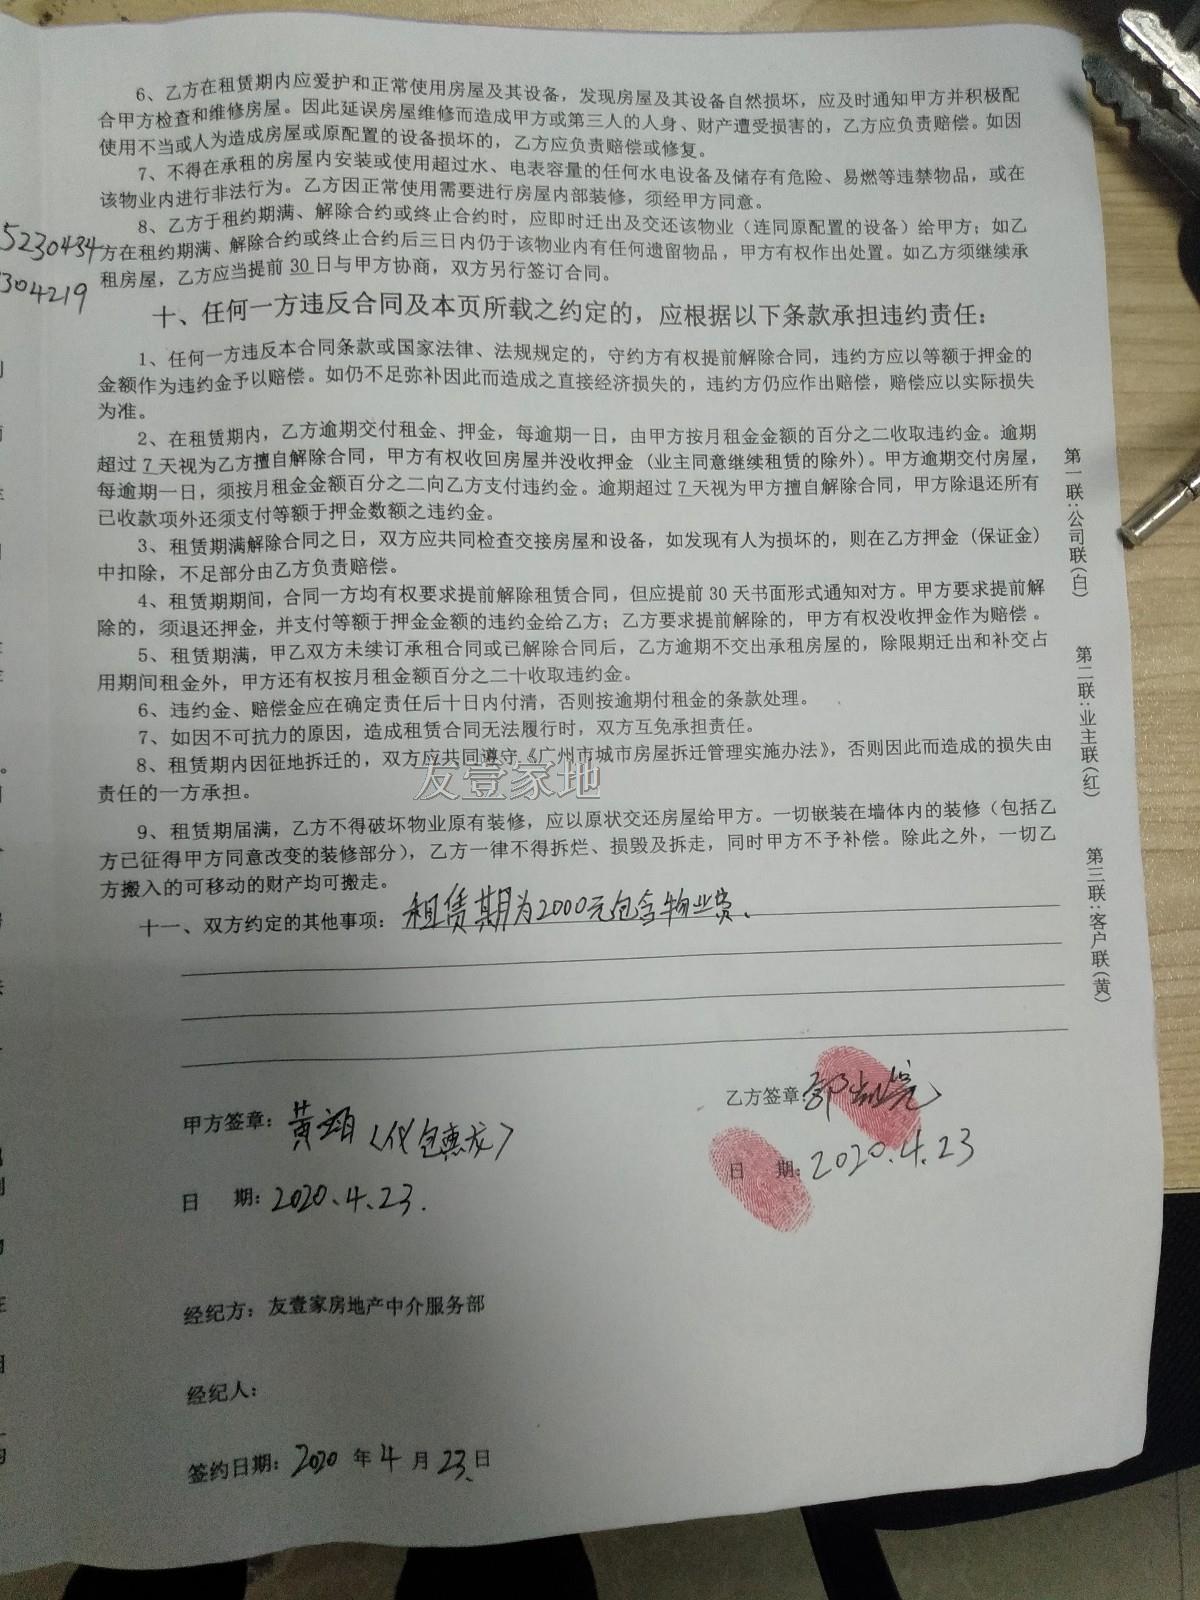 6、乙方在租赁期内应爱护和正常使用房屋及其设备，发现房屋及其设备自然损坏，应及时通知甲方并积极配
合甲方检查和维修房屋。因此延误房屋维修而造成甲方或第三人的人身、财产遭受损害的，乙方应负责赔偿。如因
使用不当或人为造成房屋或原配置的设备损坏的，乙方应负责赔偿或修复。
7、不得在承租的房屋内安装或使用超过水、电表容量的任何水电设备及储存有危险、易燃等违禁物品，或在
该物业内进行非法行为。乙方因正常使用需要进行房屋内部装修，须经甲方同意。
8、乙方于租约期满、解除合约或终止合约时，应即时迁出及交还该物业（连同原配置的设备）给甲方；如乙
5230434
方在租约期满、解除合约或终止合约后三日内仍于该物业内有任何遗留物品，甲方有权作出处置。如乙方须继续承
304219
租房屋，乙方应当提前30日与甲方协商，双方另行签订合同。
十、任何一方违反合同及本页所载之约定的，应根据以下条款承担违约责任：
1、任何一方违反本合同条款或国家法律、法规规定的，守约方有权提前解除合同，违约方应以等额于押金的
金额作为违约金予以赔偿。如仍不足弥补因此而造成之直接经济损失的，违约方仍应作出赔偿，赔偿应以实际损失
为准。
2、在租赁期内，乙方逾期交付租金、押金，每逾期一日，由甲方按月租金金额的百分之二收取违约金。逾期
超过7天视为乙方擅自解除合同，甲方有权收回房屋并没收押金（业主同意继续租赁的除外）。甲方逾期交付房屋，
每逾期一日，须按月租金金额百分之二向乙方支付违约金。逾期超过7天视为甲方擅自解除合同，甲方除退还所有
已收款项外还须支付等额于押金数额之违约金。
3、租赁期满解除合同之日，双方应共同检查交接房屋和设备，如发现有人为损坏的，则在乙方押金（保证金）
中扣除，不足部分由乙方负责赔偿。
4、租赁期期间，合同一方均有权要求提前解除租赁合同，但应提前30天书面形式通知对方。甲方要求提前解
除的，须退还押金，并支付等额于押金金额的违约金给乙方；乙方要求提前解除的，甲方有权没收押金作为赔偿。
5、租赁期满，甲乙双方未续订承租合同或已解除合同后，乙方逾期不交出承租房屋的，除限期迁出和补交占
用期间租金外，甲方还有权按月租金额百分之二十收取违约金。
6、违约金、赔偿金应在确定责任后十日内付清，否则按逾期付租金的条款处理。
7、如因不可抗力的原因，造成租赁合同无法履行时，双方互免承担责任。
8、租赁期内因征地拆迁的，双方应共同遵守《广州市城市房屋拆迁管理实施办法》，否则因此而造成的损失由
责任的一方承担。
友壹家地
9、租赁期届满，乙方不得破坏物业原有装修，应以原状交还房屋给甲方。一切嵌装在墙体内的装修（包括乙
方已征得甲方同意改变的装修部分），乙方一律不得拆烂、损毁及拆走，同时甲方不予补偿。除此之外，一切乙
方搬入的可移动的财产均可搬走。
十一、双方约定的其他事项：租赁期为2000元包含物业费、
第一联：公司联（白）
第二联：业主联（红）
第三联：客户联（黄）
甲方签章：黄
乙方签章：
日 期：2020.4.23.
日 期：2020.4.23
经纪方：友壹家房地产中介服务部
经纪人：
签约日期：2020年4月23日